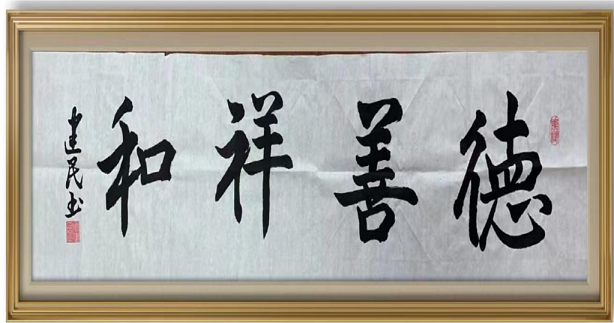 德善祥和
建民书